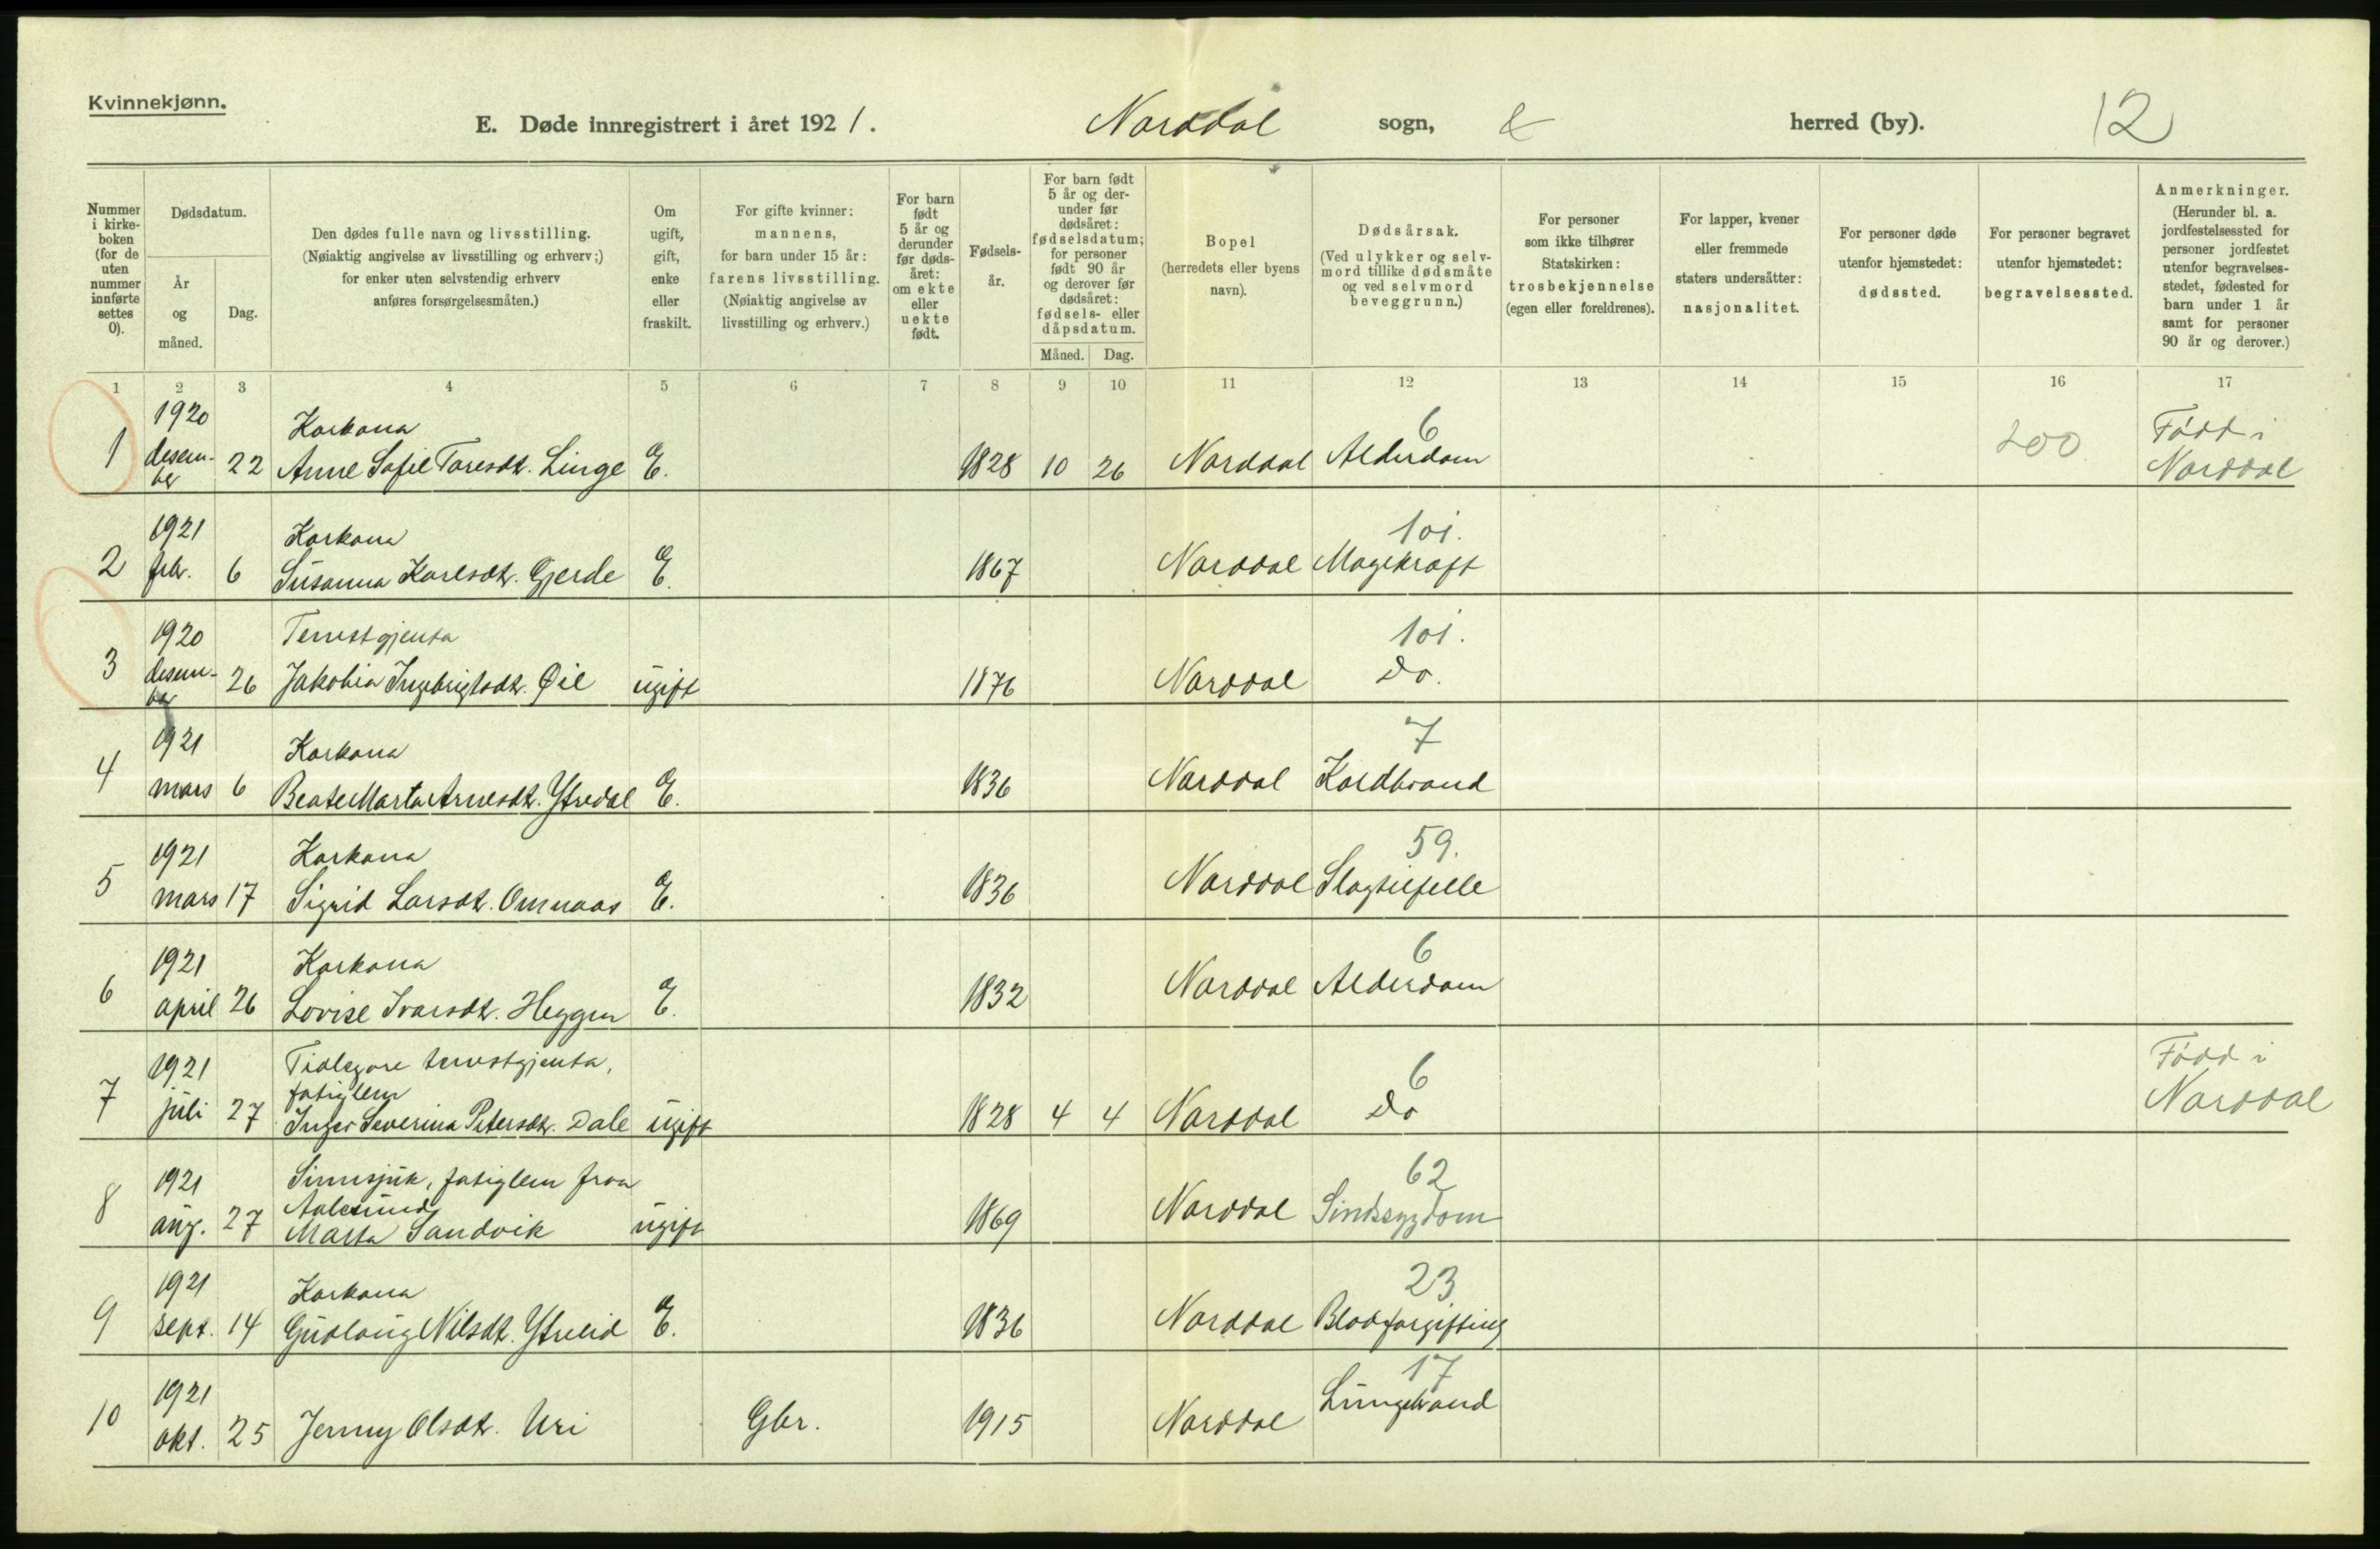 Kvinnekjønn.
E. Døde innregistrert i året 1921. Norddal sogn, & herred (by). 12
Nummer i kirkeboken (for de uten nummer innførte settes 0).
Dødsdatum.
År og måned.
Dag.
Den dødes fulle navn og livsstilling.
(Nøiaktig angivelse av livsstilling og erhverv;)
for enker uten selvstendig erhverv
anføres forsørgelsesmåten.)
Om ugift, gift, enke eller fraskilt.
For gifte kvinner:
mannens,
for barn under 15 år:
farens livsstilling.
(Nøiaktig angivelse av
livsstilling og erhverv.)
For barn født 5 år og derunder før dødsåret: om ekte eller uekte født.
Fødselsår.
For barn født 5 år og derunder før dødsåret: fødselsdatum; for personer født 90 år og derover før dødsåret: fødsels- eller dåpsdatum.
Måned. Dag.
Bopel
(herredets eller byens
navn).
Dødsårsak.
(Ved ulykker og selvmord tillike dødsmåte og ved selvmord beveggrunn.)
For personer
som ikke tilhører
Statskirken:
trosbekjennelse
(egen eller foreldrenes).
For lapper, kvener
eller fremmede
staters undersåtter:
nasjonalitet.
For personer døde
utenfor hjemstedet:
dødssted.
For personer begravet
utenfor hjemstedet:
begravelsessted.
Anmerkninger.
(Herunder bl. a.
jordfestelsessted for
personer jordfestet
utenfor begravelses-
stedet, fødested for
barn under 1 år
samt for personer
90 år og derover.)
1 2 3 4 5 6 7 8 9 10 11 12 13 14 15 16 17
1920 Korkona 6 Född i
1 desember 22 Anne Sofie Toresdt. Linge E. 1828 10 26 Norddal Alderdom 200 Norddal
1921 Korkona 101.
2 febr. 6 Susanna Karlsdt. Gjerde E. 1867 Norddal Magekræft
1920 Tenestgjenta 101.
3 desember 26 Jakobia Ingebrigtsdt. Øie ugift 1876 Norddal do.
1921 Korkona 7
4 mars 6 Beate Marta Arnesdt. Ytredal E. 1836 Norddal Koldbrand
1921 Korkona 59.
5 mars 17 Sigrid Larsdt. Omnaas E. 1836 Norddal Slagtilfelle
1921 Korkona 6
6 april 26 Lovise Ivarsdt. Heggen E. 1832 Norddal Alderdom
1921 Tidlegare tenestgjenta, 6 Född i
fatiglem
7 juli 27 Inger Severina Petersdt. Dale ugift 1828 4 4 Norddal do Norddal
1921 Sinnsjuk, fatiglem fraa 62
Aalesund
8 aug. 27 Marta Sandvik ugift 1869 Norddal Sindssygdom
1921 Korkona 23
9 sept. 14 Gudlaug Nilsdt. Ytreeid E. 1836 Norddal Blodforgifting
1921 17
10 okt. 25 Jenny Olsdt. Uri Gbr. 1915 Norddal Lungebrand